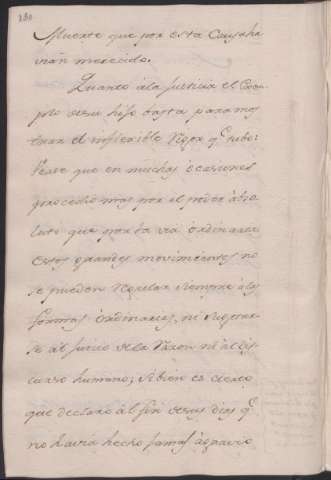 280
Muerte que por esta Causa ha
vian merecido.
Quanto â la Justicia el Exem
plo de su hijo basta para mos
trar el inflexible Rigor q.e tubo:
Vease que en muchas ocasiones
procedio mas por el poder abso
luto que por la via ordinaria
estos grandes movimientos no
se pueden Regular siempre â las
formas ôrdinarias, ni sugetar
se âl juicio de la Razon ni âl dis
curso humano; si bien es cierto
que declarò âl fin de sus dias q.e
no havia hecho Jamas agravio